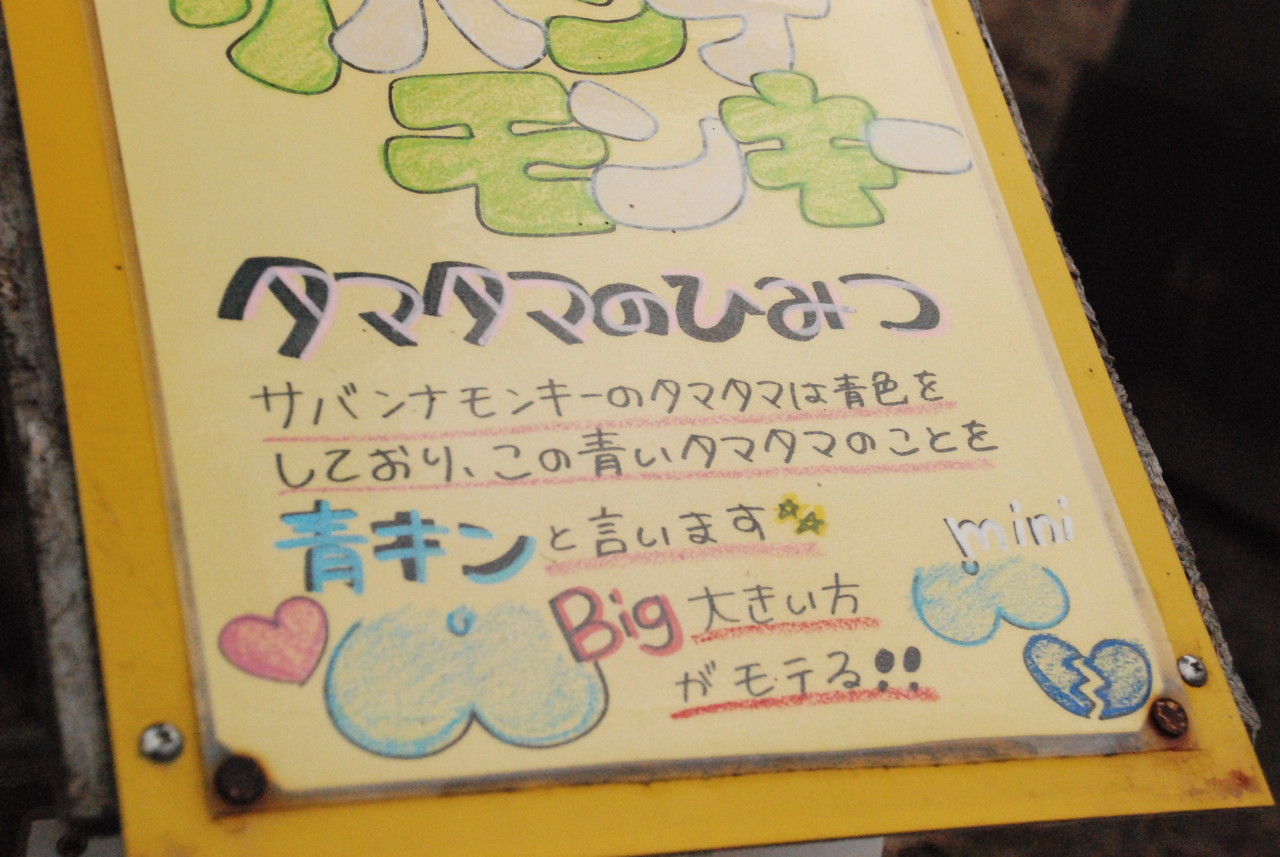 サバンナ
モンキー
タマタマのひみつ
サバンナモンキーのタマタマは青色を
しており、この青いタマタマのことを
青キンと言います
mini
Big 大きい方
がモテる!!